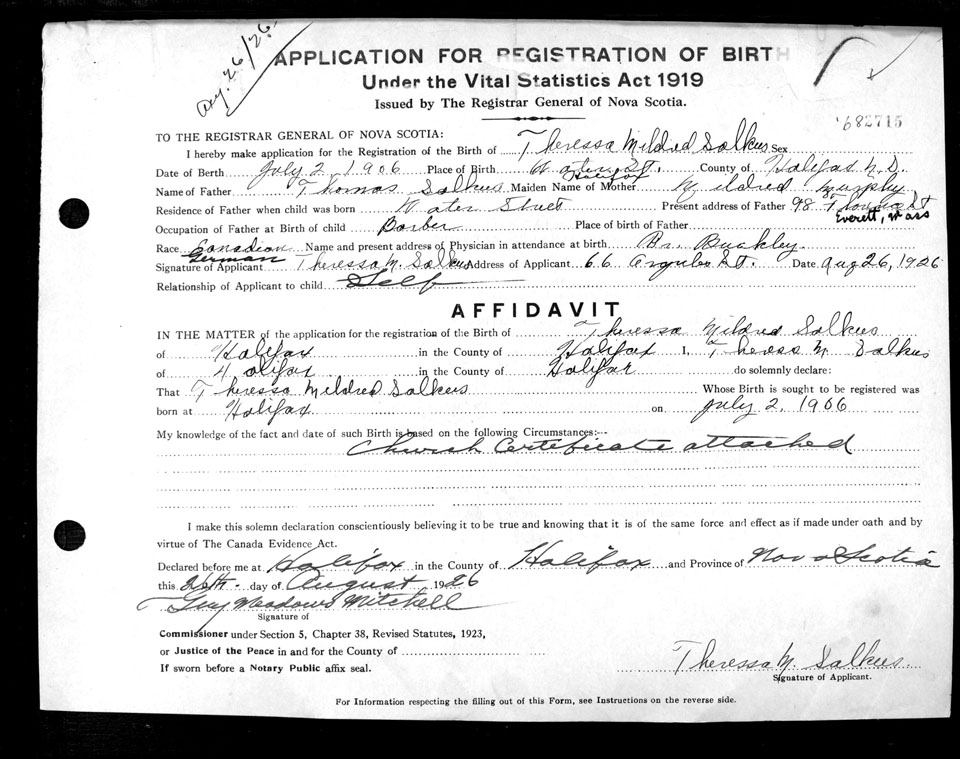 Aug. 26/26.
APPLICATION FOR REGISTRATION OF BIRTH
Under the Vital Statistics Act 1919
Issued by The Registrar General of Nova Scotia.
682715
TO THE REGISTRAR GENERAL OF NOVA SCOTIA:
I hereby make application for the Registration of the Birth of Theressa Mildred Salkus Sex
Date of Birth July 2, 1906 Place of Birth Water St. Halifax County of Halifax N.S.
Name of Father Thomas Salkus Maiden Name of Mother Mildred Murphy
Residence of Father when child was born Water Street Present address of Father 98 St
Everett, Mass
Occupation of Father at Birth of child Barber Place of birth of Father
Race Canadian Name and present address of Physician in attendance at birth Dr. Buckley.
German
Signature of Applicant Theressa M. Salkus Address of Applicant 66 Argyle St. Date Aug 26, 1926
Relationship of Applicant to child Self
AFFIDAVIT
IN THE MATTER of the application for the registration of the Birth of Theressa Mildred Salkus
of Halifax in the County of Halifax I, Theress M Salkus
of Halifax in the County of Halifax do solemnly declare:
That Theressa Mildred Salkus Whose Birth is sought to be registered was
born at Halifax on July 2, 1906
My knowledge of the fact and date of such Birth is based on the following Circumstances:--
Church Certificate attached
I make this solemn declaration conscientiously believing it to be true and knowing that it is of the same force and effect as if made under oath and by
virtue of The Canada Evidence Act.
Declared before me at Halifax in the County of Halifax and Province of Nova Scotia
this 26th. day of August 1926
Guy Meadows Mitchell
Signature of
Commissioner under Section 5, Chapter 38, Revised Statutes, 1923,
or Justice of the Peace in and for the County of
If sworn before a Notary Public affix seal.
Theressa M. Salkus.
Signature of Applicant.
For Information respecting the filling out of this Form, see Instructions on the reverse side.